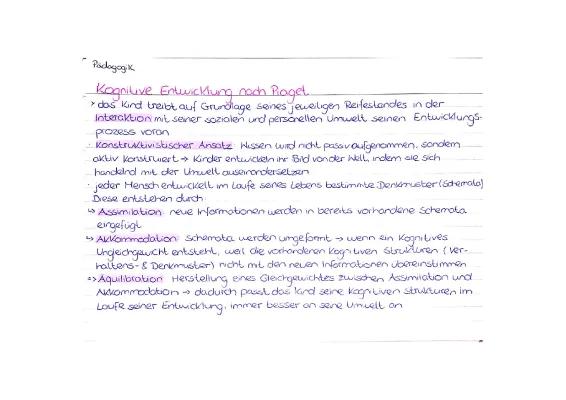 Pädagogik
Kognitive Entwicklung nach Piaget
> das Kind treibt auf Grundlage seines jeweiligen Reifestandes in der
Interaktion mit seiner sozialen und personellen Umwelt seinen Entwicklungs-
prozess voran
· Konstruktivistischer Ansatz: Wissen wird nicht passiv aufgenommen, sondern
aktiv konstruiert → Kinder entwickeln ihr Bild von der Welt, indem sie sich
handelnd mit der Umwelt auseinandersetzen
· jeder Mensch entwickelt im Laufe seines Lebens bestimmte Denkmuster (Schemata)
Diese entstehen durch:
↳ Assimilation: neue Informationen werden in bereits vorhandene Schemata
eingefügt
↳ Akkommodation: Schemata werden umgeformt → wenn ein kognitives
Ungleichgewicht entsteht, weil die vorhandenen kognitiven Strukturen (Ver-
haltens- & Denkmuster) nicht mit den neuen Informationen übereinstimmen
=> Äquilibration: Herstellung eines Gleichgewichtes zwischen Assimilation und
Akkommodation → dadurch passt das Kind seine kognitiven Strukturen im
Laufe seiner Entwicklung, immer besser an seine Umwelt an